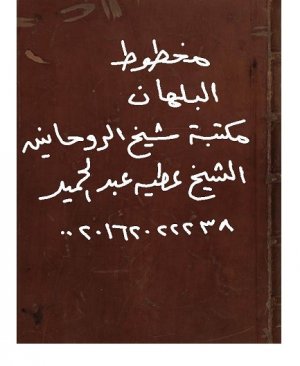 مخطوط
البلهان
مكتبة شيخ الروحانيين
الشيخ عطيه عبد الحميد
٠٠٢٠١٦٢٠٢٢٢٣٨